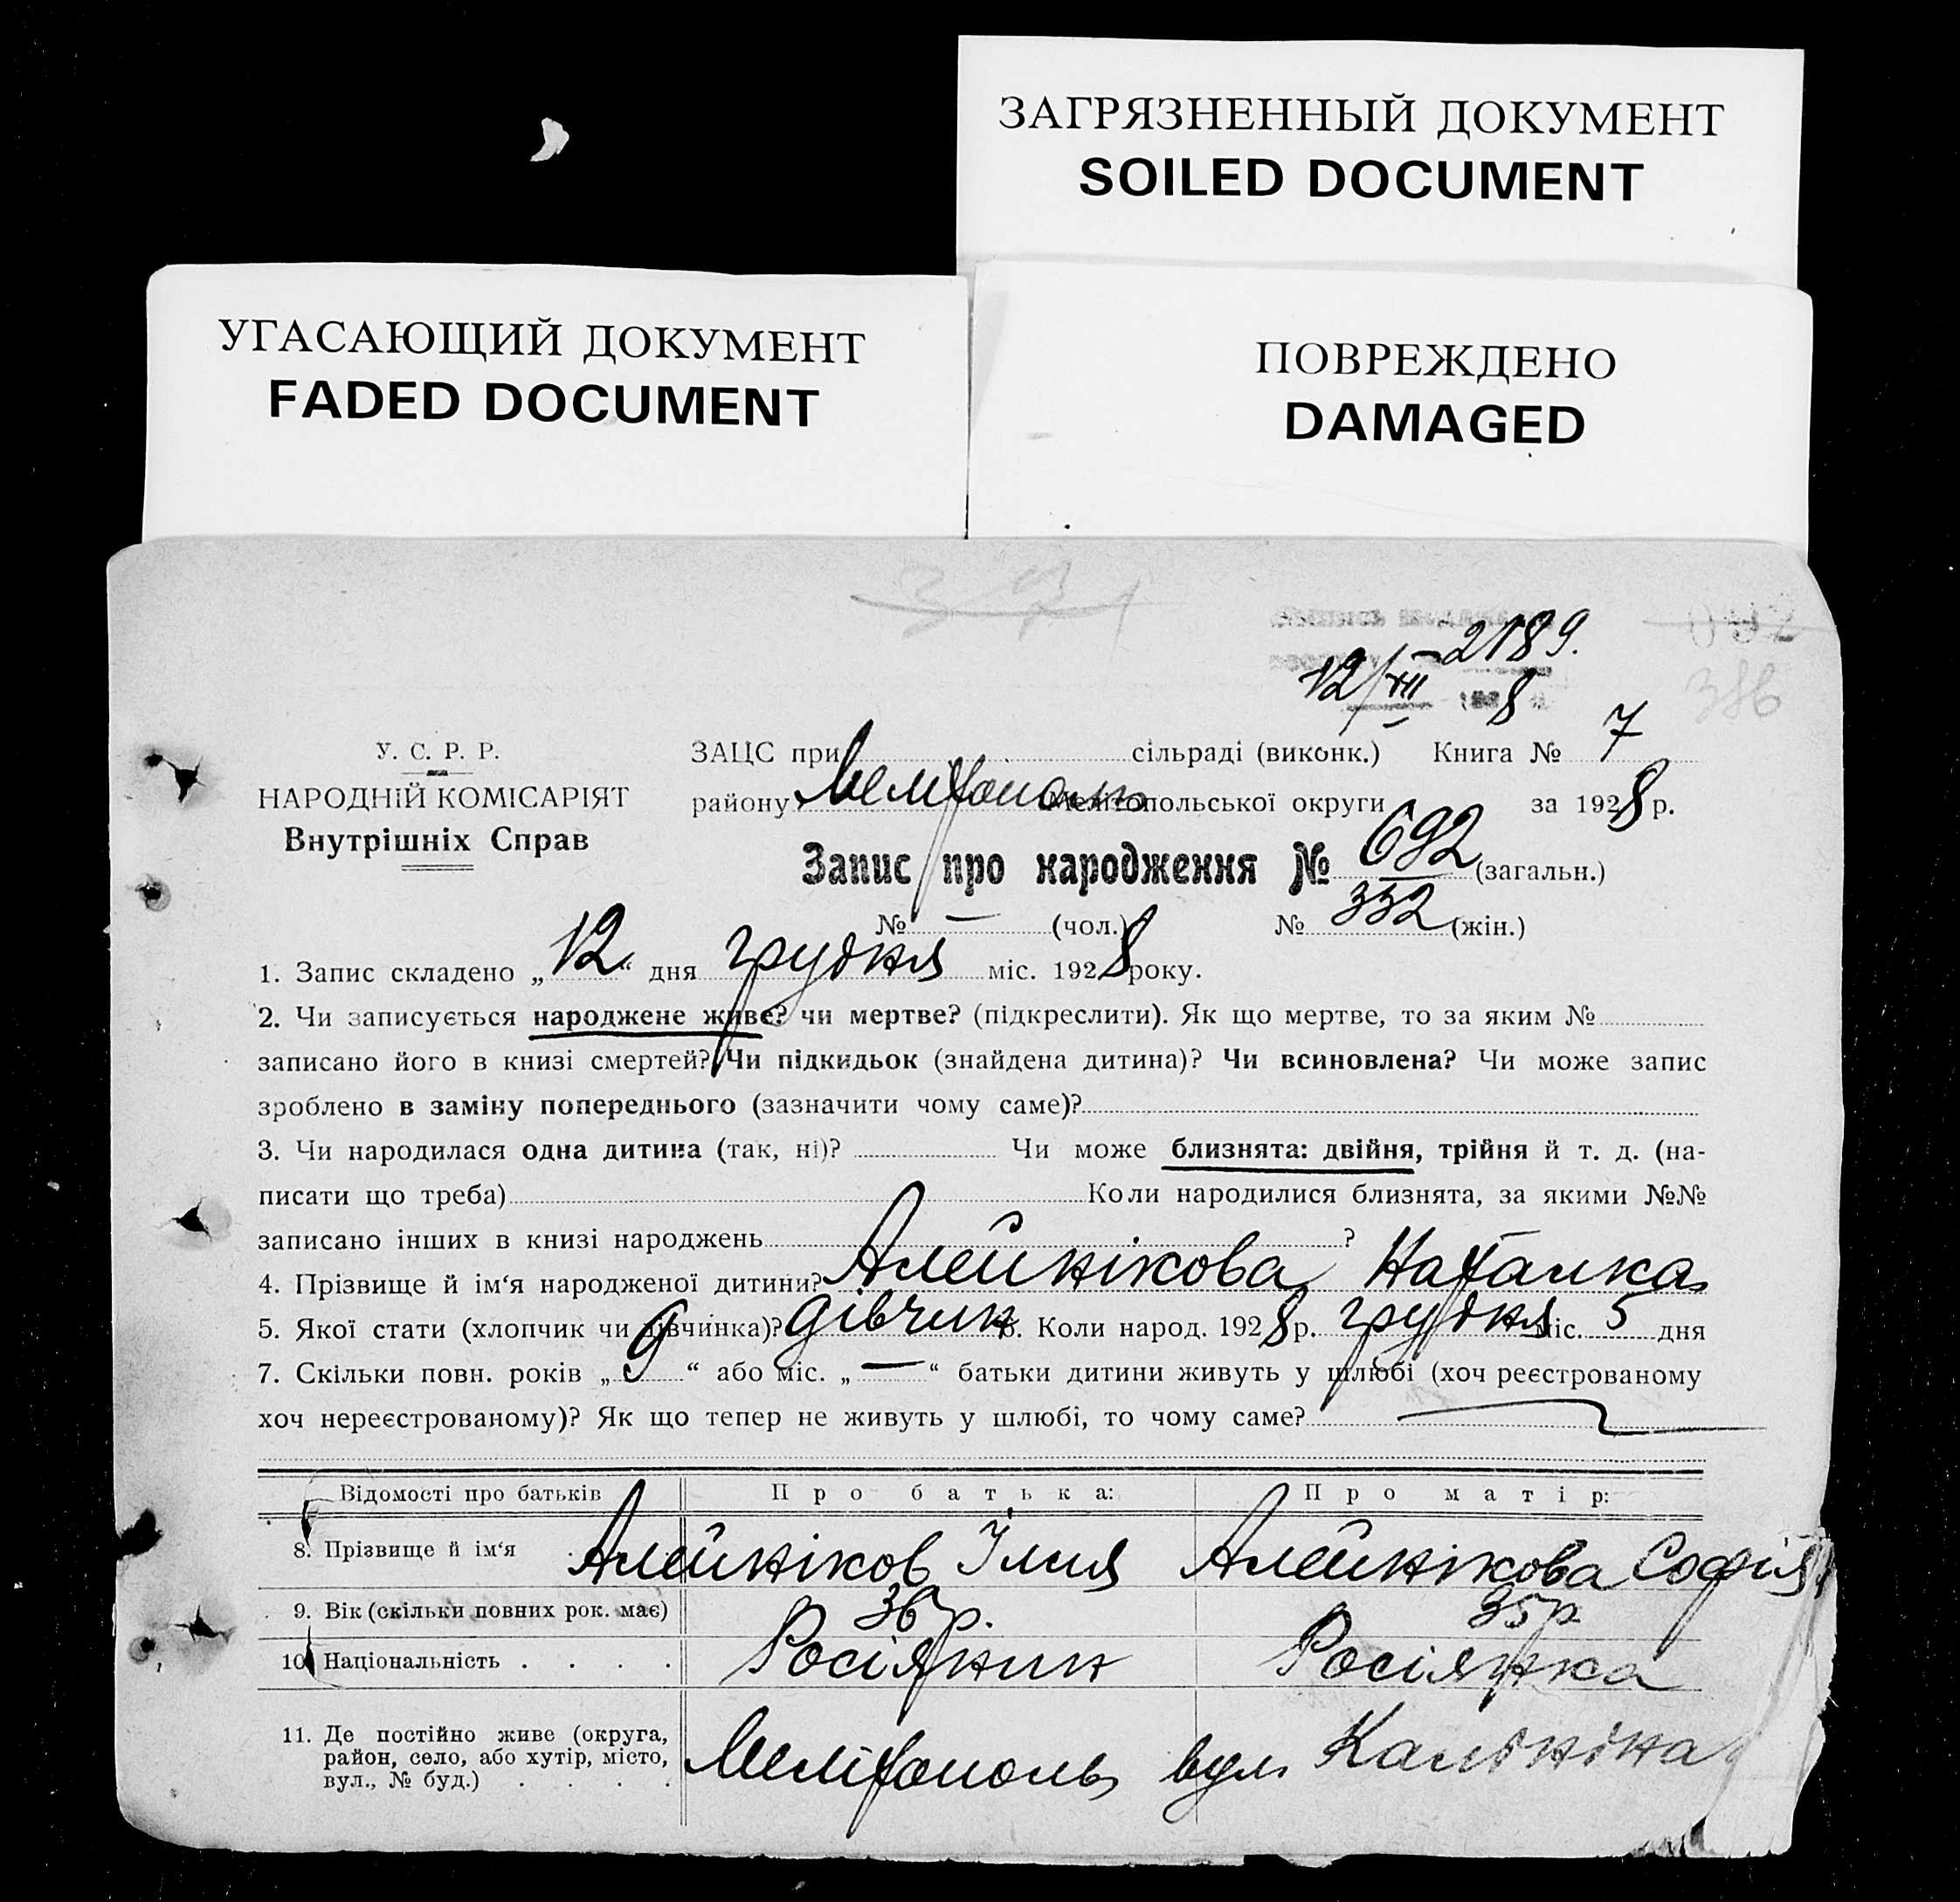 ЗАГРЯЗНЕННЫЙ ДОКУМЕНТ
SOILED DOCUMENT
УГАСАЮЩИЙ ДОКУМЕНТ
FADED DOCUMENT
ПОВРЕЖДЕНО
DAMAGED
2189.
12/XII 8
386
У. С. Р. Р.
НАРОДНІЙ КОМІСАРІЯТ
Внутрішніх Справ
ЗАЦС при сільраді (виконк.) Книга № 7
району Мелітополь Мелітопольської округи за 1928 р.
Запис про народження № 692 (загальн.)
№ — (чол.) № 332 (жін.)
1. Запис складено „12“ дня грудня міс. 1928 року.
2. Чи записується народжене живе? чи мертве? (підкреслити). Як що мертве, то за яким №
записано його в книзі смертей? Чи підкидьок (знайдена дитина)? Чи всиновлена? Чи може запис
зроблено в заміну попереднього (зазначити чому саме)?
3. Чи народилася одна дитина (так, ні)? Чи може близнята: двійня, трійня й т. д. (на-
писати що треба) Коли народилися близнята, за якими №№
записано інших в книзі народжень ?
4. Прізвище й ім‘я народженої дитини? Алейнікова Наталка
5. Якої стати (хлопчик чи дівчинка)? дівчин 6. Коли народ. 1928 р. грудня міс. 5 дня
7. Скільки повн. років „9“ або міс. „—“ батьки дитини живуть у шлюбі (хоч реєстрованому
хоч нереєстрованому)? Як що тепер не живуть у шлюбі, то чому саме?
Відомості про батьків Про батька: Про матір:
8. Прізвище й ім‘я Алейніков Ілля Алейнікова Софія
9. Вік (скільки повних рок. має) 36 р. 35 р
10. Національність . . . . Росіянин Росіянка
11. Де постійно живе (округа,
район, село, або хутір, місто,
вул., № буд.) . . . . Мелітополь вул Калініна